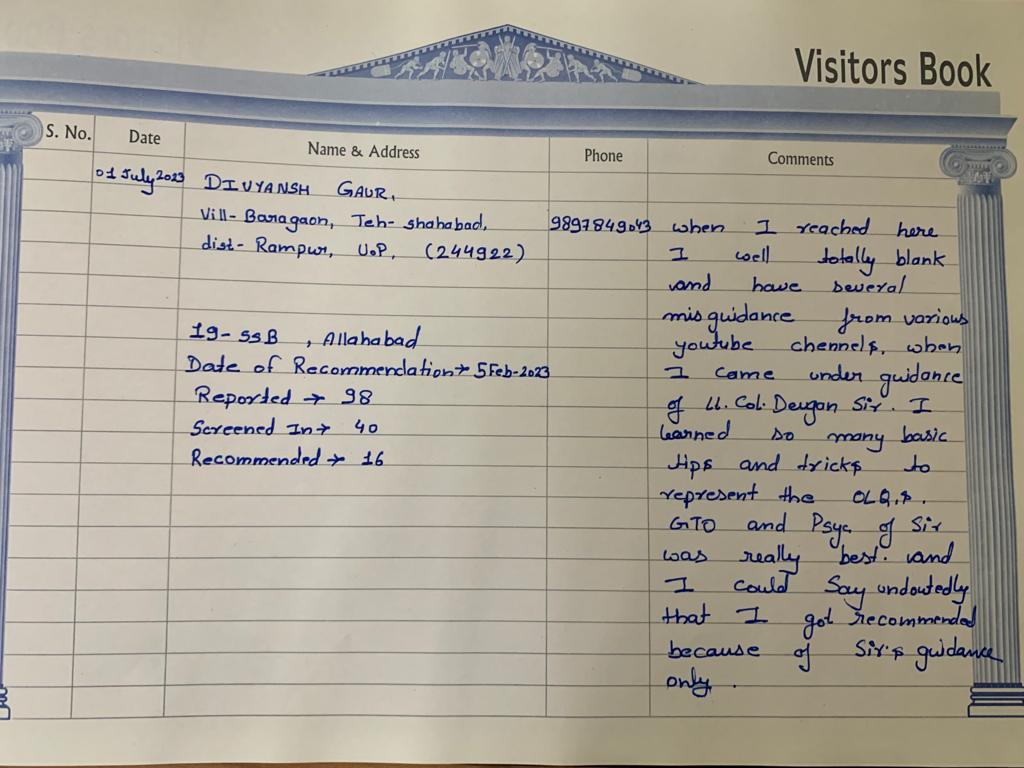 Visitors Book
S. No. Date Name & Address Phone Comments
01 July 2023 DIVYANSH GAUR,
Vill- Baragaon, Teh- shahabad, 9897849043 when I reached here
dist- Rampur, U.P, (244922) I well totally blank
and have several
misguidance from various
19- SSB , Allahabad youtube chennels, when
Date of Recommendation → 5 Feb-2023 I came under guidance
Reported → 98 of Lt. Col. Deugan Sir. I
Screened In → 40 learned so many basic
Recommended → 16 tips and tricks to
represent the OLQ,s.
GTO and Psyc of Sir
was really best. and
I could Say undoutedly
that I got recommended
because of Sir's guidance
only.